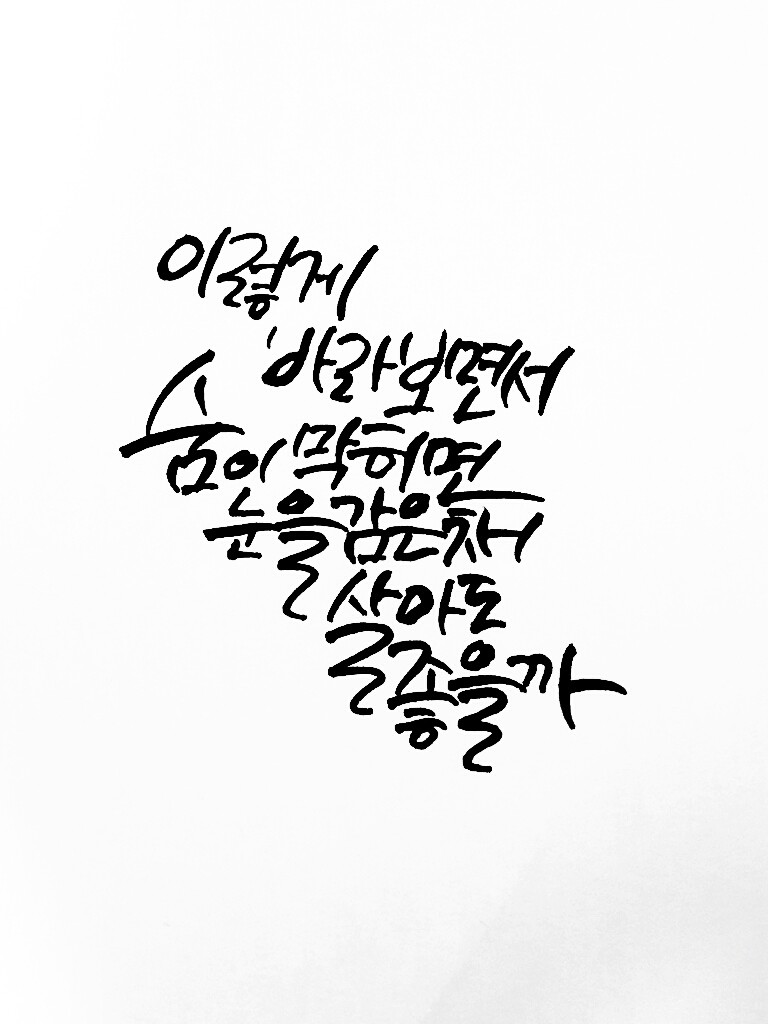 이렇게
바라보면서
숨이 막히면
눈을 감은 채
살아도
좋을까